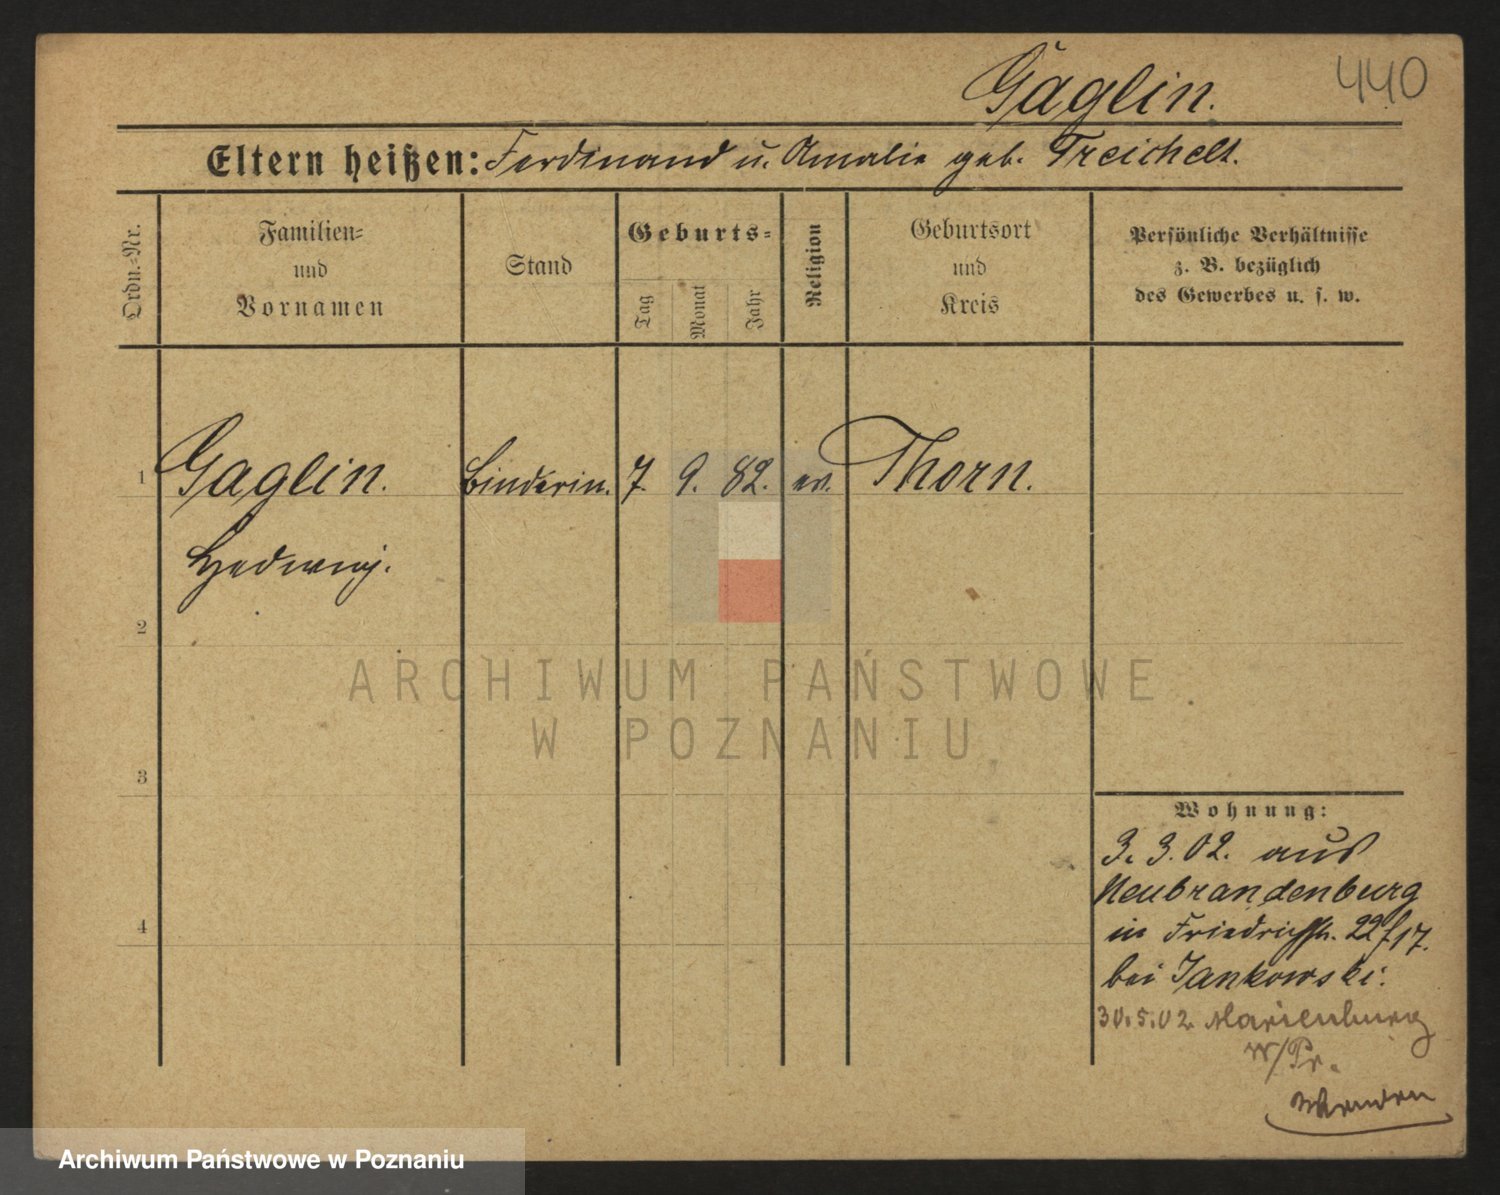 Gaglin.
440
Eltern heißen: Ferdinand u. Amalie geb. Treichelt.
Ordn.-Nr.
Familien-
und
Vornamen
Stand
Geburts-
Tag
Monat
Jahr
Religion
Geburtsort
und
Kreis
Persönliche Verhältnisse
z. B. bezüglich
des Gewerbes u. s. w.
1 Gaglin. Binderin. 7. 9. 82. ev. Thorn.
Hedwig.
2
3
4
Wohnung:
3. 3. 02. aus
Neubrandenburg
in Friedrichstr. 22/17.
bei Jankowski.
30.5.02 Marienburg
W/Pr.
wenden
ARCHIWUM PAŃSTWOWE
W POZNANIU
Archiwum Państwowe w Poznaniu